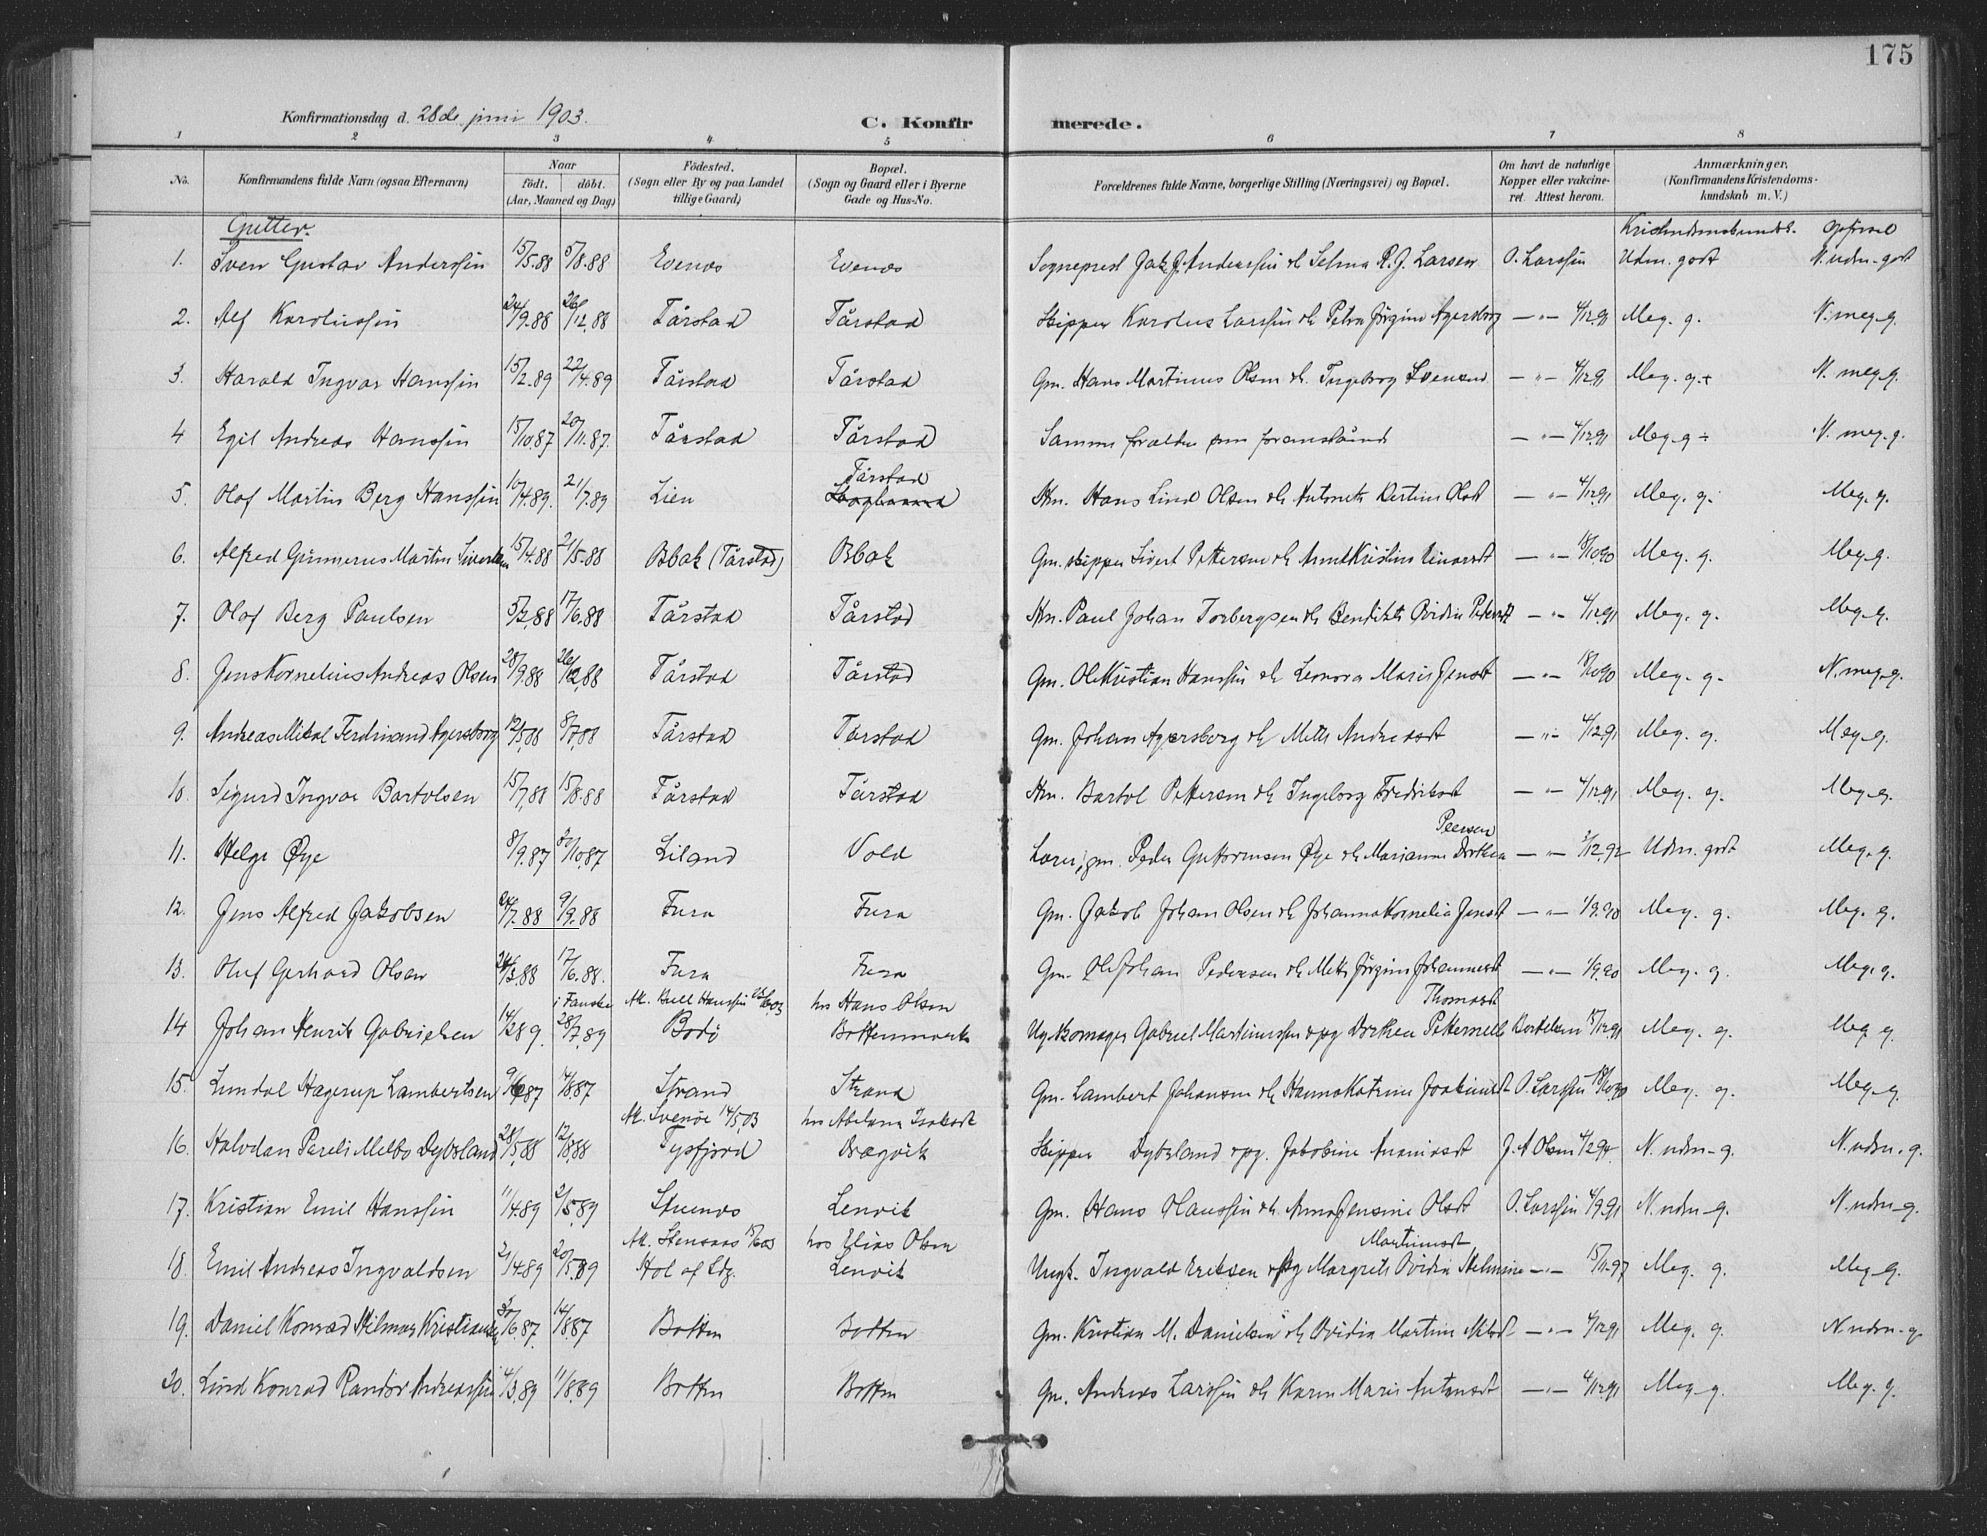 175
Konfirmationsdag d. 28de juni 1903.
C. Konfirmerede.
1 2 3 4 5 6 7 8
No. Konfirmandens fulde Navn (ogsaa Efternavn) Naar födt. döbt. (Aar, Maaned og Dag) Födested. (Sogn eller By og paa Landet tillige Gaard) Bopæl. (Sogn og Gaard eller i Byerne Gade og Hus-No. Forældrenes fulde Navne, borgerlige Stilling (Næringsvei) og Bopæl. Om havt de naturlige Kopper eller vakcineret. Attest herom. Anmærkninger. (Konfirmandens Kristendomskundskab m. V.)
Gutter. Opførsel
1. Sven Gustav Anderssen 15/5.88 5/8.88 Evenes Evenes Sogneprest Jak. J. Anderssen og Selma R. J. Larsen O. Larssen Udm. godt N. udm. godt
2. Alf Karolussen 24/9.88 26/12.88 Tårstad Tårstad Skipper Karolus Larssen og Petra Jørgine Agersborg — " — 4/12.91 Meg. g. N. meg. g.
3. Harald Ingvar Hanssen 15/2.89 22/4.89 Tårstad Tårstad Gm. Hans Martinus Olsen og Ingeborg — " — 4/12.91 Meg. g. + N. meg. g.
4 Egil Andreas Hanssen 15/10.87 20/11.87. Tårstad Tårstad Samme forældre som foranstående — " — 4/12.91 Meg. g ÷ N. meg. g.
5. Olaf Martin Berg Hanssen 10/4.89. 21/7.89 Lien Tårstad Hans Lind Olsen og — " — 4/12.91 Meg. g. Meg. g.
6. Alfred Gunnerus Martin Sivertsen 15/4.88 21/5.88 Osbak (Tårstad) Osbak Gm. skipper Sivert Pettersen og — " — 18/10.90 Meg. g. Meg. g.
7. Olaf Berg Paulsen 5/2.88 17/6.88 Tårstad Tårstad Paul Johan Torbergsen og — " — 4/12.91 Meg. g. Meg. g.
8. Jens Kornelius Andreas Olsen 28/9.88 26/12.88 Tårstad Tårstad Gm. Ole Kristian Hanssen og Leonora Marie Jensdt — " — 18/10.90 Meg. g. N. meg. g.
9. Andreas Mikal Ferdinand Agersborg 12/5.88 8/7.88 Tårstad Tårstad Gm. Johan Agersborg og Mette Andreasdt — " — 4/12.91 Meg. g. Meg. g.
10. Sigurd Ingvar Bartolsen 15/7.88 15/8.88 Tårstad Tårstad Bartol Pettersen og Ingeborg Fredriksdt — " — 4/12.91 Meg. g. Meg. g.
11. Helge Øye 8/9.87 30/10.87 Liland Vold Lærer, gm. Peder Guttormsen Øye og Marianne Dorthea Peersen — " — 3/12.92 Udm. godt Meg. g.
12. Jens Alfred Jakobsen 24/7.88 9/9.88 Fura Fura Gm. Jakob Johan Olsen og Johanna Kornelia Jensdt — " — 1/9.90 Meg. g. Meg. g.
13. Oluf Gerhard Olsen 17/6.88. Fura Fura Gm. Ole Johan Pedersen og Mette Jørgine Johannesdt — " — 1/9.90 Meg. g. Meg. g.
14 Johan Henrik Gabrielsen 14/2.89. i Fauske 28/7.89 Bodø hos Hans Olsen Bottenmark Gabriel Martinussen og pg Dorthea Petternelle Thomasdt Bertelsen 15/12.91 Meg. g. Meg. g.
15. Lundal Hagerup Lambertsen Strand Strand Gm. Lambert Johansen og Hanna Katrine Joakimsdt O. Larssen 18/10.90 Meg. g. Meg. g.
16. Halvdan Parelius Melbo Dybsland 28/5.88 12/8.88 At. Svenøe 14/5.03 Tysfjord hos Abelone Isaksdt Dragvik Skipper Dybsland og pg. Jakobine J. A Olsen N. udm. g. N. udm. g.
17. Kristian Emil Hanssen 11/4.89 2/5.89 Stuenes Lenvik Gm. Hans Hanssen og Anna Jensine Olsdt O. Larssen 4/9.91 N. udm. g. N. udm. g.
18. Emil Andreas Ingvaldsen 21/4.89 20/5.89 Hol af Ldg. hos Elias Olsen Lenvik Ungk. Ingvald Eriksen og pg Margrete Ovidia Helmine Martinusdt — " — 15/11.97 Meg. g. Meg. g.
19. Daniel Konrad Hilmar Kristiansen 30/6.87. 14/8.87 Botten Botten Gm. Kristian M. Danielsen og Ovidia Martine — " — 4/12.91 Meg. g. N. udm. g.
20. Lind Konrad Randor Andreassen 4/3.89 11/8.89 Botten Botten Gm. Andreas Larssen og Karen Marie Antonsdt — " — 4/12.91 Meg. g. Meg. g.